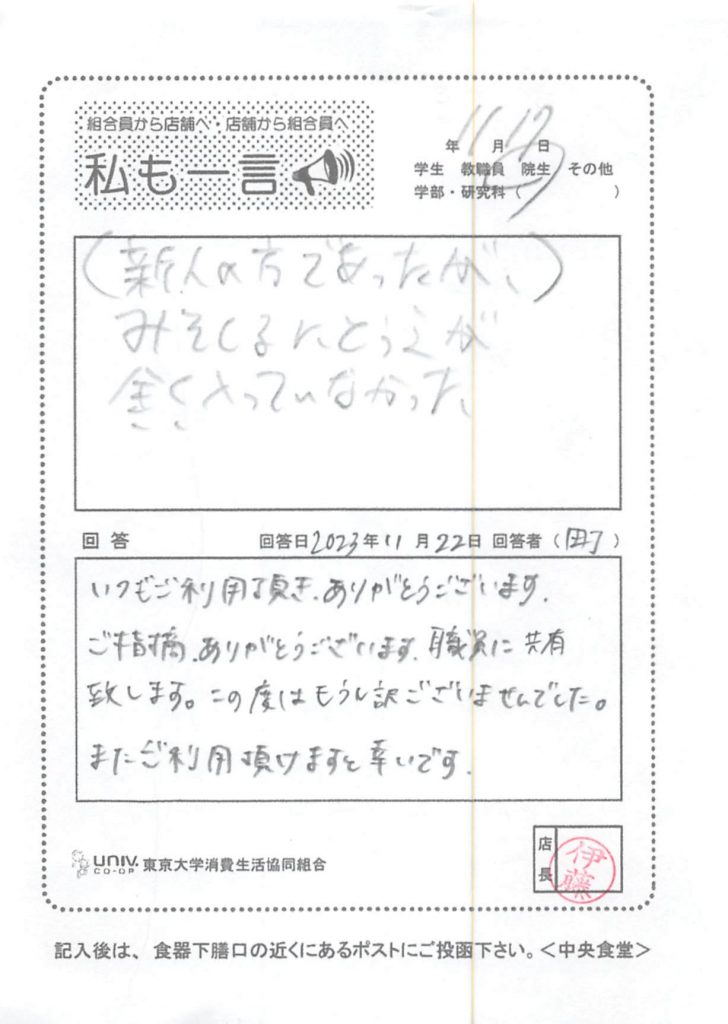 組合員から店舗へ・店舗から組合員へ
私も一言
年 11月 17日
学生 教職員 院生 その他
学部・研究科 ( )
(新人の方であったが、)
みそしるにとうふが
全く入っていなかった
回答 回答日2023年11月22日 回答者(町)
いつもご利用頂き、ありがとうございます.
ご指摘、ありがとうございます. 職員に共有
致します。この度はもうし訳ございませんでした。
またご利用頂けますと幸いです.
UNIV. CO-OP 東京大学消費生活協同組合
店長
伊藤
記入後は、食器下膳口の近くにあるポストにご投函下さい。<中央食堂>